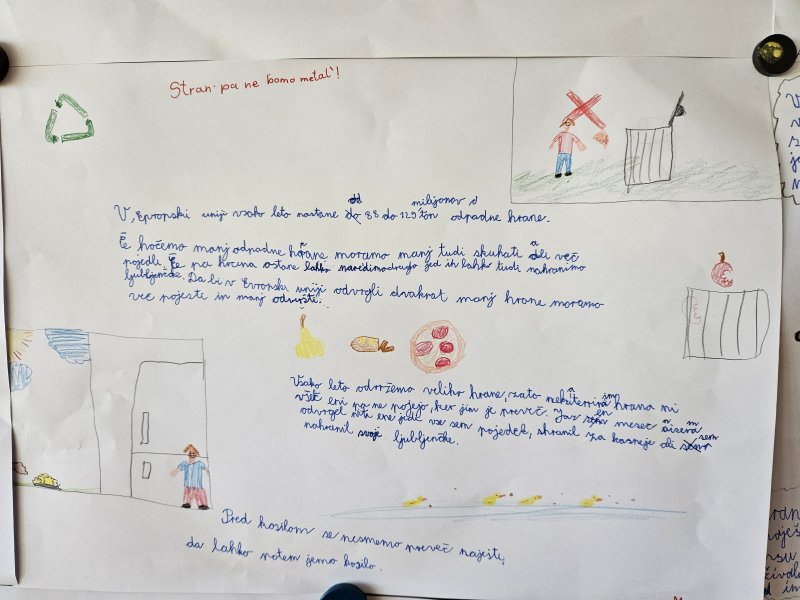 Stran pa ne bomo metal'!
V Evropski uniji vsako leto nastane od 88 do 129 milijonov ton odpadne hrane.
Če hočemo manj odpadne hrane moramo manj tudi skuhati ali več
pojedli. Če pa hrana ostane lahko naredimo drugo jed ih lahko tudi nahranimo
ljubljenčke. Da bi v Evropski uniji odvrgli dvakrat manj hrane moramo
več pojesti in manj odvreči.
Vsako leto odvržemo veliko hrane, zato nekaterim hrana ni
všeč eni pa ne pojejo, ker jim je preveč. Jaz en mesec nisem
odvrgel niti ene jedi vse sem pojedel, shranil za kasneje ali sem
nahranil svoje ljubljenčke.
Pred kosilom se nesmemo preveč najesti,
da lahko potem jemo kosilo.